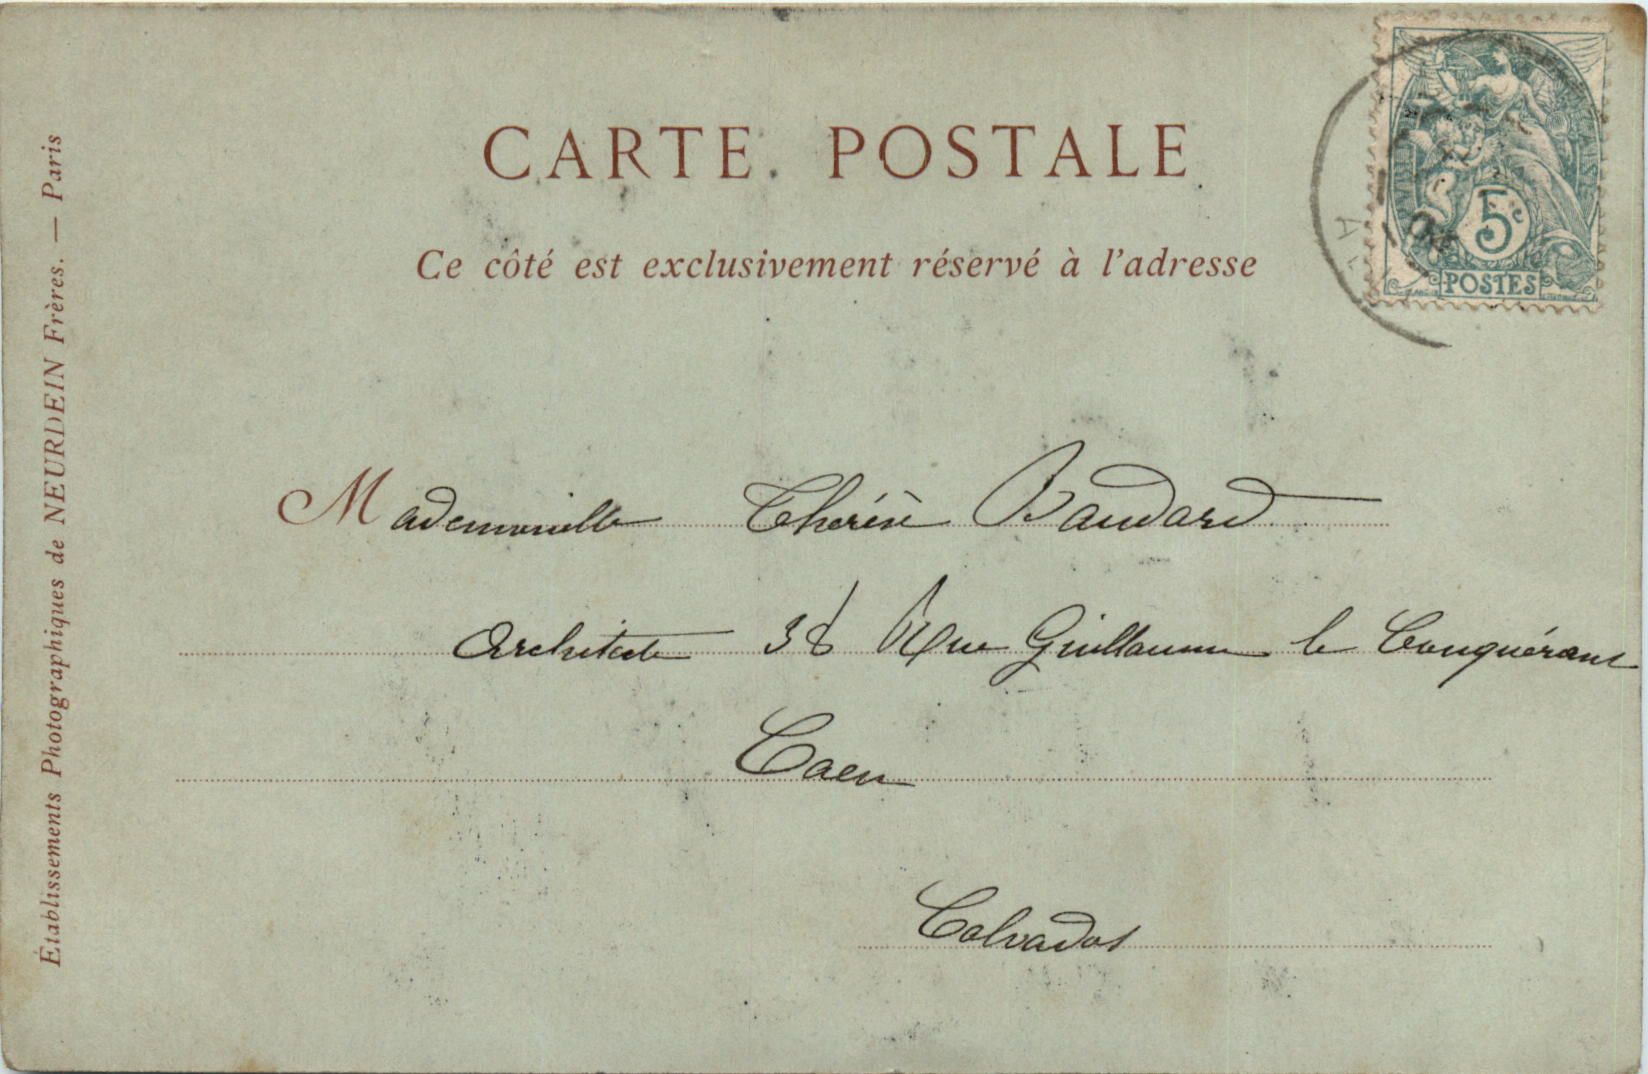 CARTE POSTALE
Ce côté est exclusivement réservé à l'adresse
Mademoiselle Thérèse Baudard
Architecte 38 Rue Guillaume le Conquérant
Caen
Calvados
Établissements Photographiques de NEURDEIN Frères. — Paris
5c
POSTES